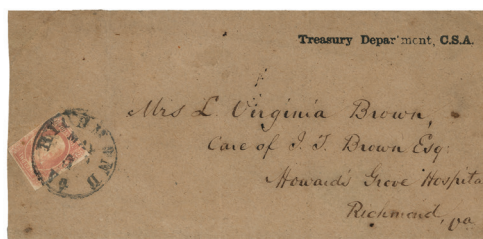 Treasury Department, C.S.A.
Mrs L. Virginia Brown,
Care of J. T. Brown Esq.
Howard's Grove Hospita
Richmond, Va
RICHMOND
MAY
VA